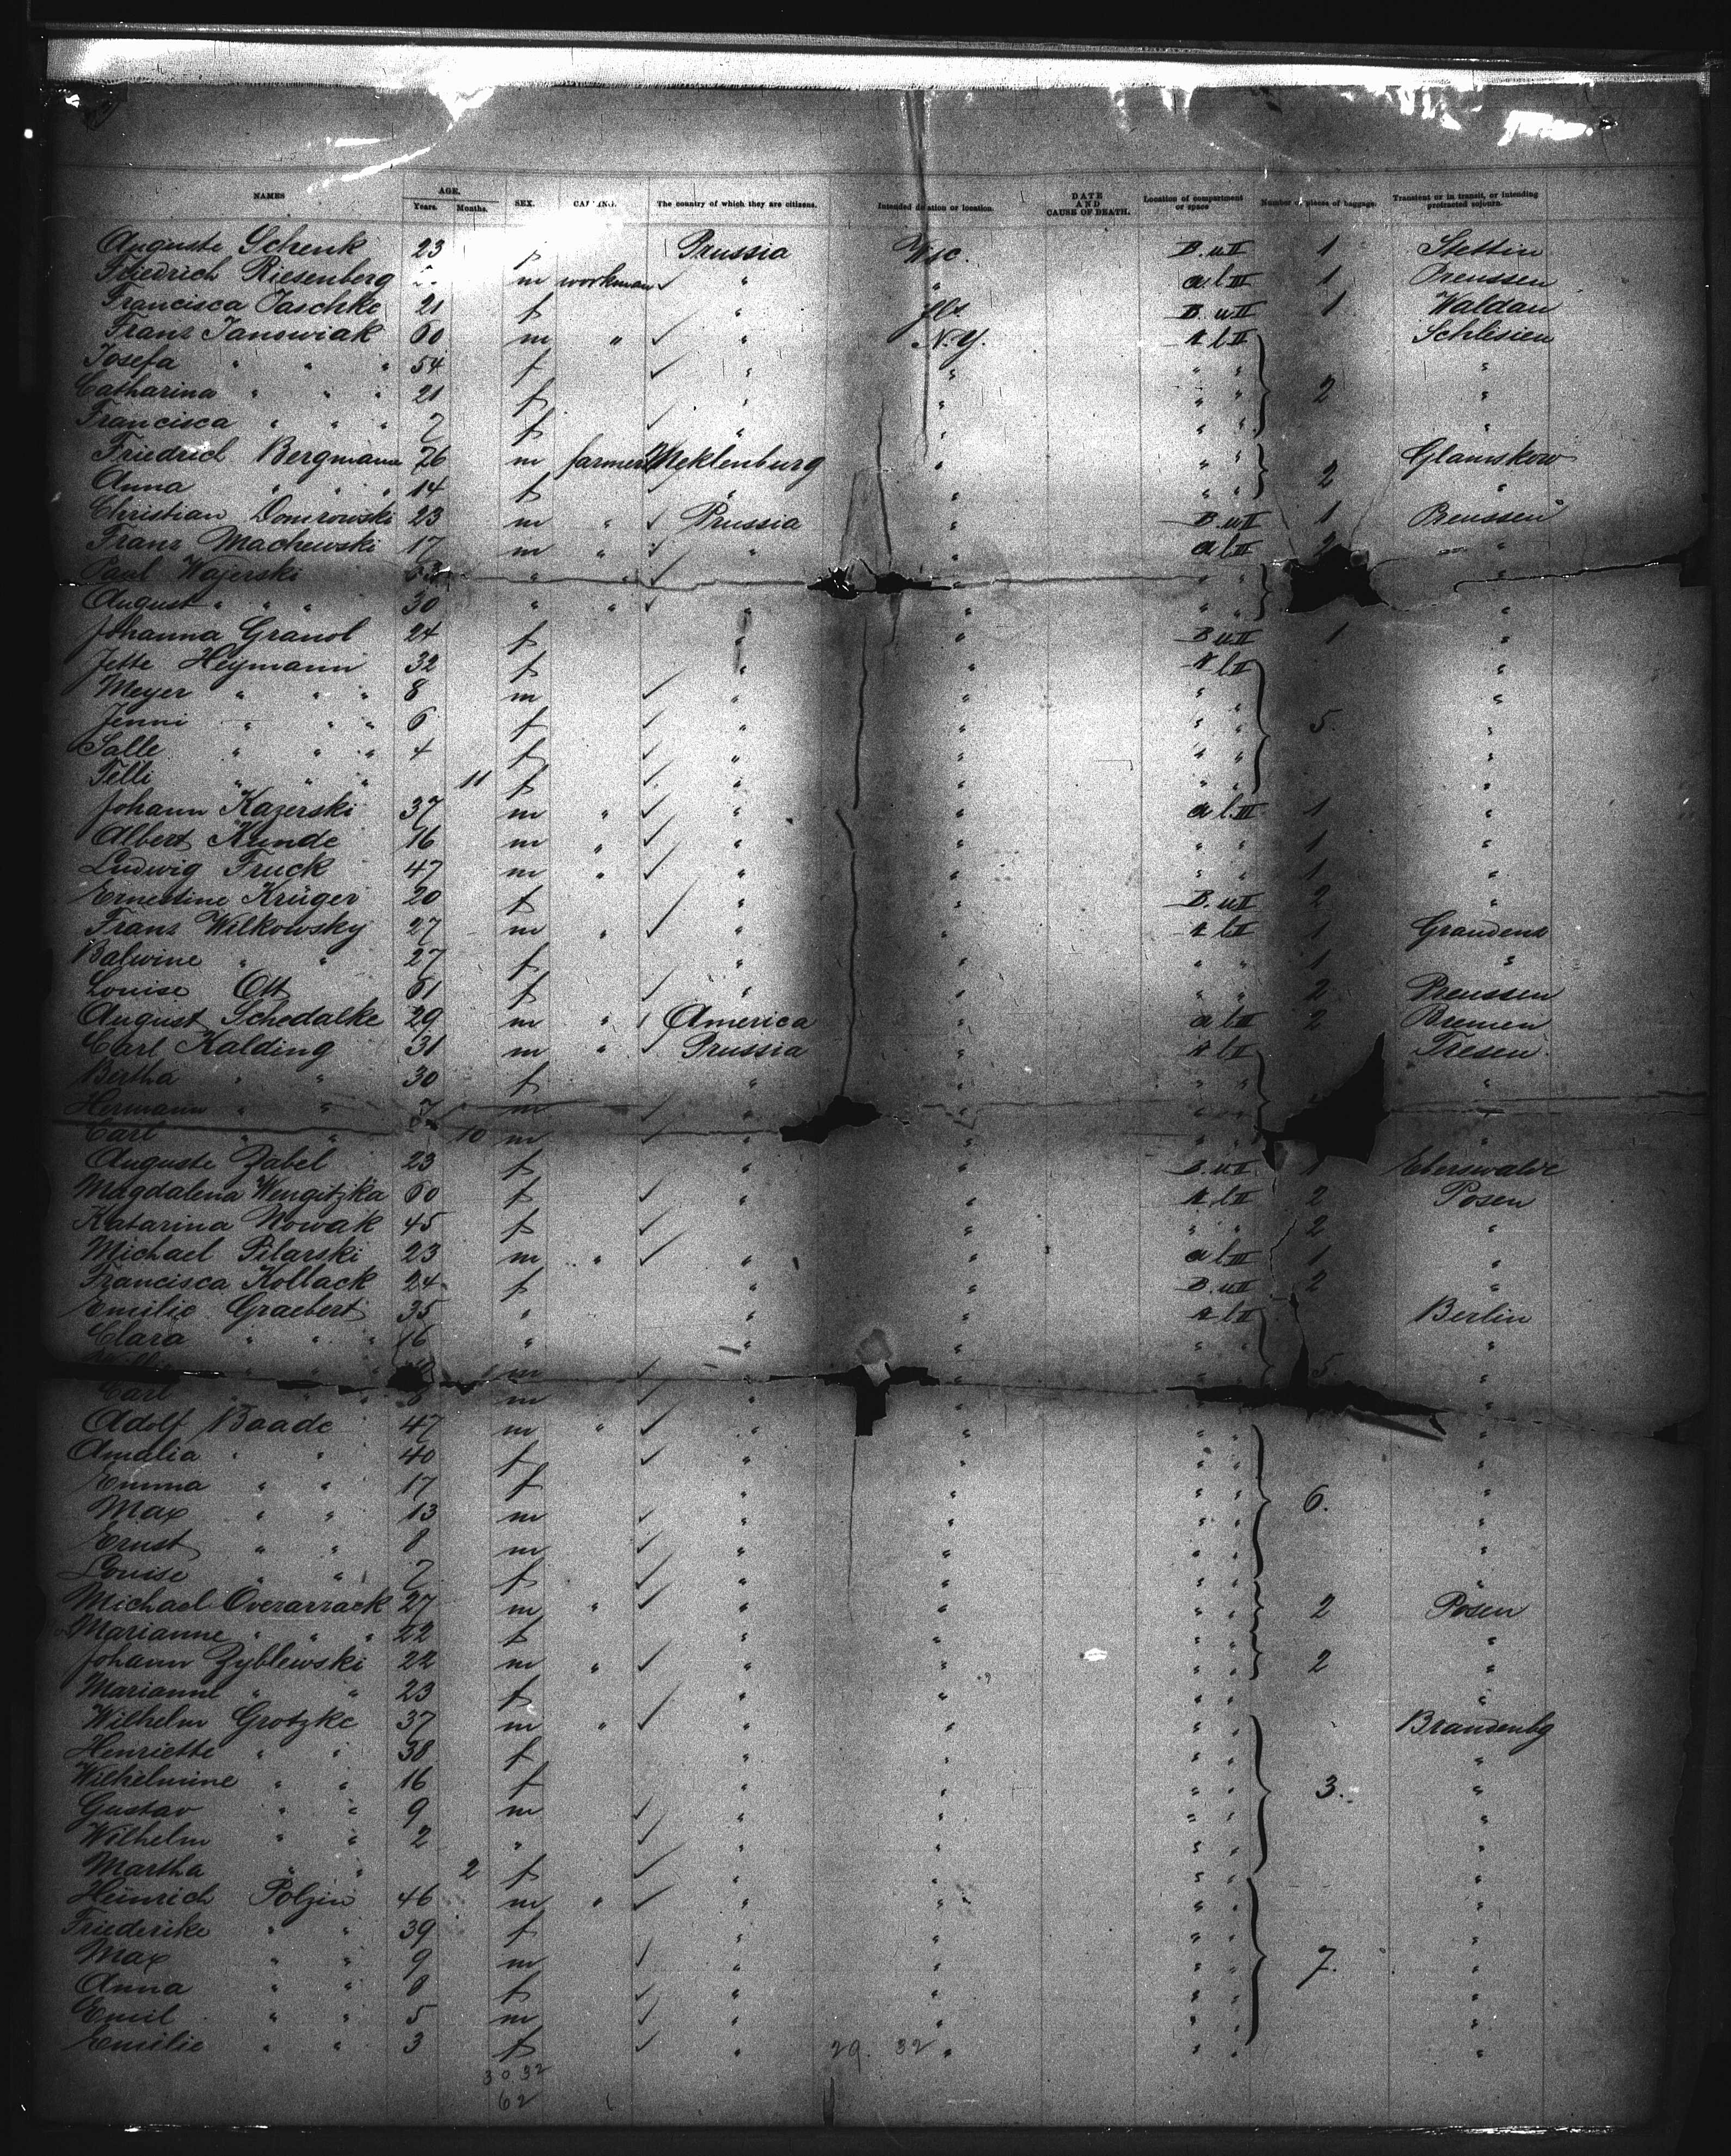 NAMES AGE. Years. Months. SEX. The country of which they are citizens. Intended or location. DATE AND CAUSE OF DEATH. Location of compartment or space Number pieces of baggage. Transient or in transit, or intending protracted sojourn.
Auguste Schenk 23 f Prussia Wisc. B. u II 1 Stettin
Friedrich Riesenberg m workman ✓ " " a l III 1 Preussen
Francisca Jaschke 21 f " B. u II 1 Waldau
Franz Janowiak 60 m " ✓ " N.Y. A l II Schlesien
Josefa " " " 54 f ✓ " " " " "
Catharina " " " 21 f " " " " 2 "
Francisca " " " 7 f ✓ " " " " "
Friedrich Bergmann 26 m farmer Meklenburg " " " 2 Glamskow
Anna " " " 14 f ✓ " " " " "
Christian Domrowski 23 m " ✓ Prussia " B. u II 1 Preussen
Franz Machewski 17 m " ✓ " " a l II 2 "
Paul Wajerski " " ✓ " " " "
August " " " 30 " " ✓ " " " " "
Johanna Granol 24 f " " B. u II 1 "
Jette Heymann 32 f " " A l II "
Meyer " " " 8 m ✓ " " " " "
Jenni " " " 6 f ✓ " " " " 5. "
Salle " " " 4 f ✓ " " " " "
Telli " " " 11 f ✓ " " " " "
Johann Kazerski 37 m " ✓ " " a l III 1 "
Albert Kunde 16 m " ✓ " " " " 1 "
Ludwig Truck 47 m " ✓ " " " " 1 "
Ernestine Krüger 20 f " " B. u II 2 "
Franz Wilkowsky 27 m " ✓ " " A l II 1 Graudenz
Balwine " " 27 f " " " " 1 "
Louise Ott 61 f ✓ " " " " 2 Preussen
August Schedalke 29 m " ✓ America " a l II 2 Bremen
Carl Kalding 31 m " ✓ Prussia " A l II Tresen
Bertha " " 30 f " " " " "
Hermann " " 7 m ✓ " " "
Carl " " 10 m ✓ " " " "
Auguste Zabel 23 f " " B. u II 1 Eberswalde
Magdalena Wengitzka 60 f ✓ " " A l II 2 Posen
Katarina Nowak 45 f ✓ " " " " 2 "
Michael Pilarski 23 m " ✓ " " a l III 1 "
Francisca Kollack 24 f " " B. u II 2 "
Emilie Graebert 35 " " " A l II Berlin
Clara " " " 16 " " " " " "
" " m ✓ " " " " 5. "
Carl " " " 8 m ✓ " " "
Adolf Baade 47 m " ✓ " " " " "
Amalia " " 40 f ✓ " " " " "
Emma " " 17 f " " " " 6. "
Max " " 13 m ✓ " " " " "
Ernst " " 8 m ✓ " " " " "
Louise " " 7 f ✓ " " " " "
Michael Overarrack 27 m " ✓ " " " " 2 Posen
Marianne " " " 22 f " " " " "
Johann Zyblewski 22 m " ✓ " " " " 2 "
Marianne " " 23 f " " " " "
Wilhelm Grotzke 37 m " ✓ " " " " Brandenbg
Henriette " " 38 f " " " " "
Wilhelmine " " 16 f " " " " 3. "
Gustav " " 9 m ✓ " " " " "
Wilhelm " " 2 " ✓ " " " " "
Martha " " 2 f ✓ " " " " "
Heinrich Polzin 46 m " ✓ " " " " "
Friederike " " 39 f " " " " "
Max " " 9 m ✓ " " " " 7. "
Anna " " 8 f ✓ " " " " "
Emil " " 5 m ✓ " " " " "
Emilie " " 3 f ✓ " 29. 32 " " " "
30 32
62